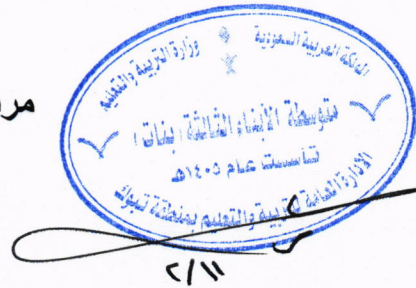 مر
المملكة العربية السعودية
وزارة التربية والتعليم
متوسطة الأبناء الثالثة (بنات)
تأسست عام ١٤٠٥هـ
الإدارة العامة للتربية والتعليم بمنطقة تبوك
٢/١١